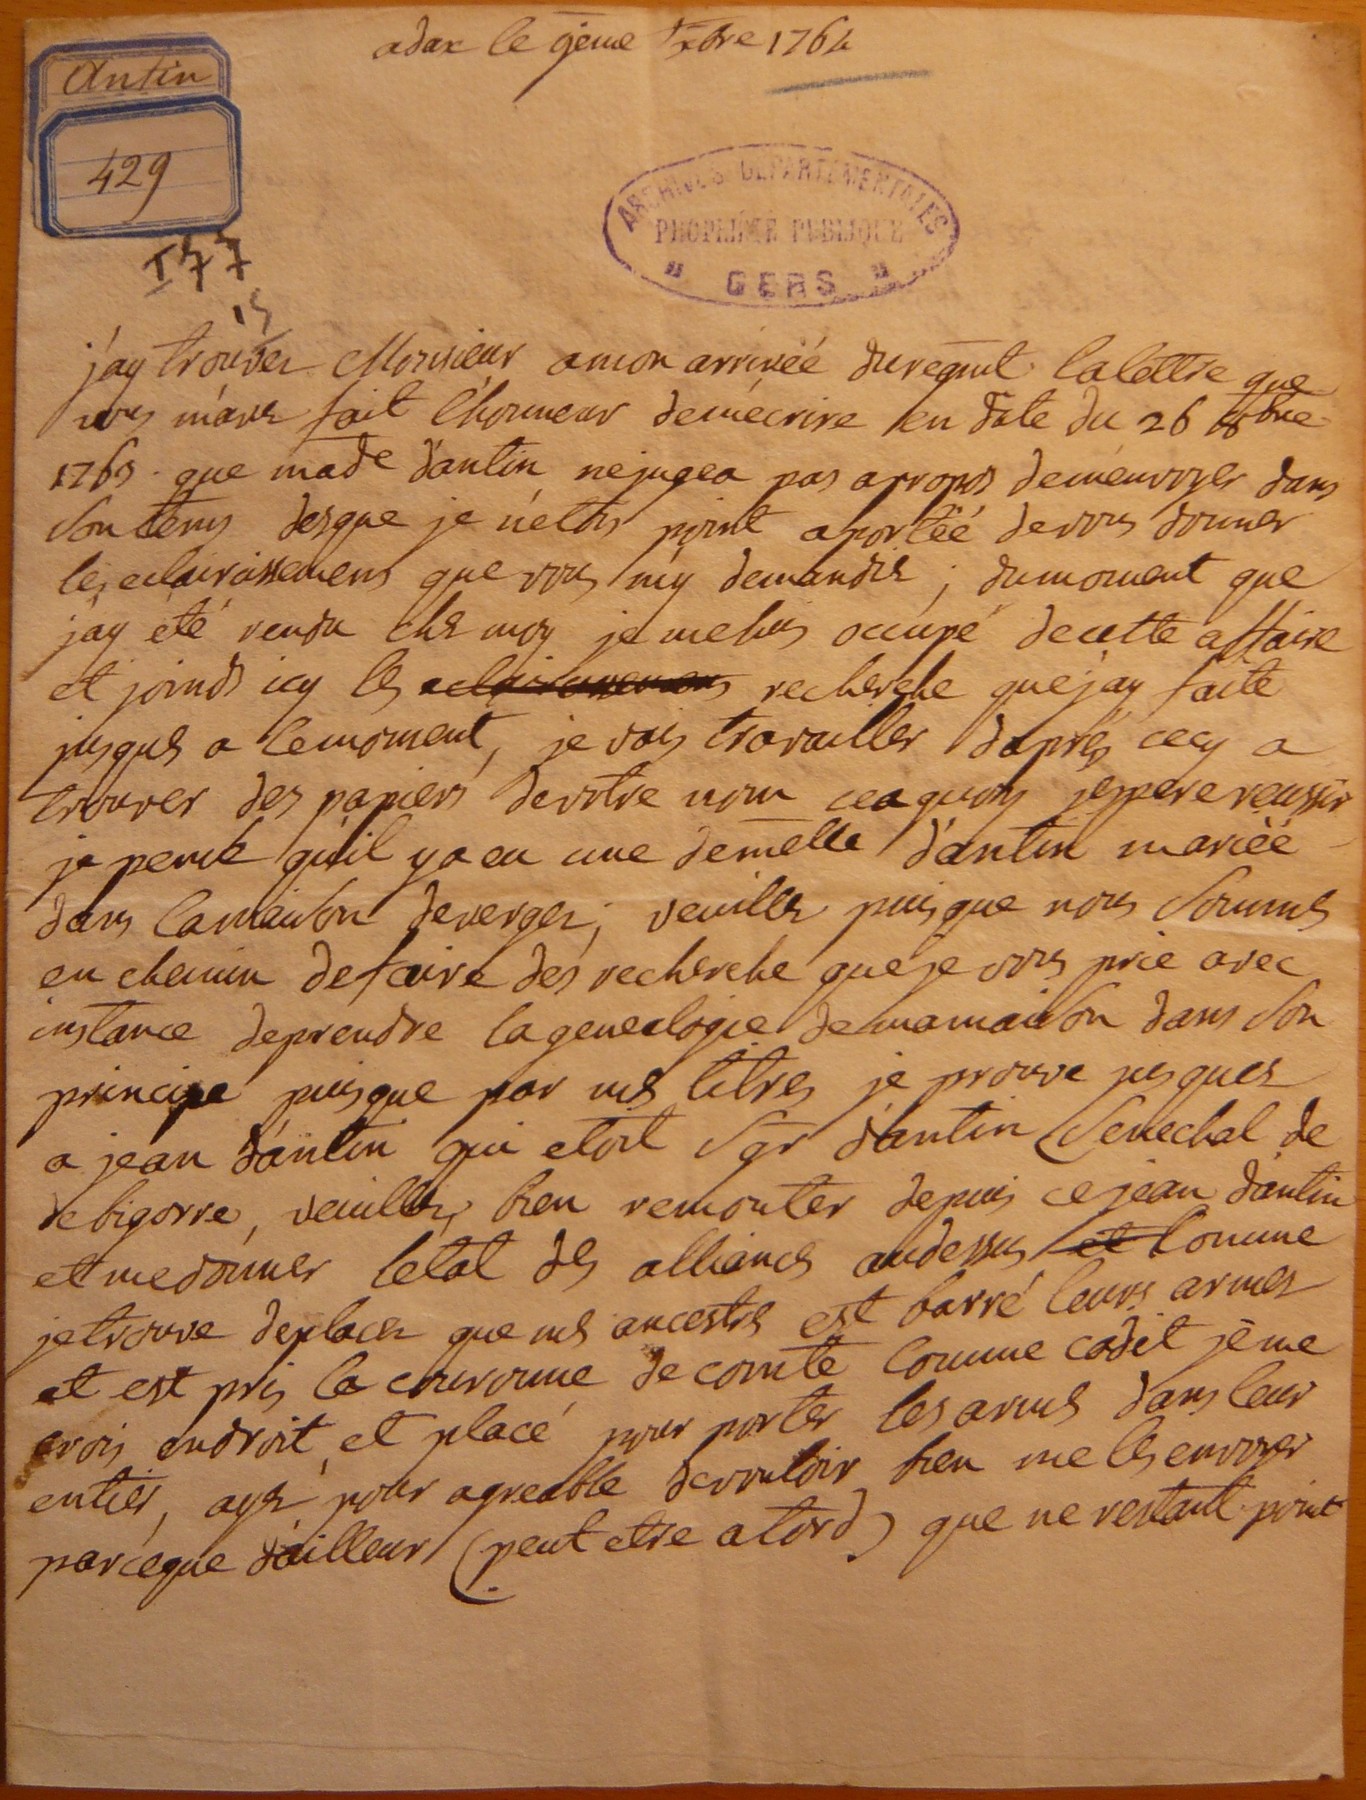 adax le 9eme xbre 1764
Antin
429
ARCHIVES DEPARTEMENTALES
PROPRIÉTÉ PUBLIQUE
" GERS "
I 77
15
j'ay trouvez Monsieur amon arriveé duregmt. lalettre que
vous m'avez fait l'honneur demécrire en date du 26 8bre
1763. que made d'antin nejugea pas apropos demenvoyer dans
son tems desque je n'etois point aporteé devous donner
les eclairissemens que vous m'y demandiez; dumoment que
j'ay été rendu chez moy je mesuis occupé decette affaire
et joinds icy les eclairissemens recherche que j'ay faite
jusques a lemoment, je vais travailler d'aprés cecy a
trouver des papiers devotre nom ceaquoy jespere reussir
je pense qu'il ya eu une demelle d'antin marieé
dans lamaison deverges; veuillez puisque nous sommes
en chemin defaire des recherche que je vous prie avec
instance deprendre la genealogie demamaison dans son
principe puisque par mes titres je prouve jusques
a jean d'antin qui etoit Sgr d'antin Senechal de
debigorre, veuillez, bien remonter depuis cejean d'antin
et medonner letat des alliances audessus, et comme
jetrouve deplacez que mes ancestres est barré leurs armes
et est pris la couronne de comte comme cadet je me
crois endroit et placé pour porter les armes dans leur
entier, ayez pour agreable devouloir bien me les envoyer
parceque d'ailleur (peut etre atord) que ne restant point